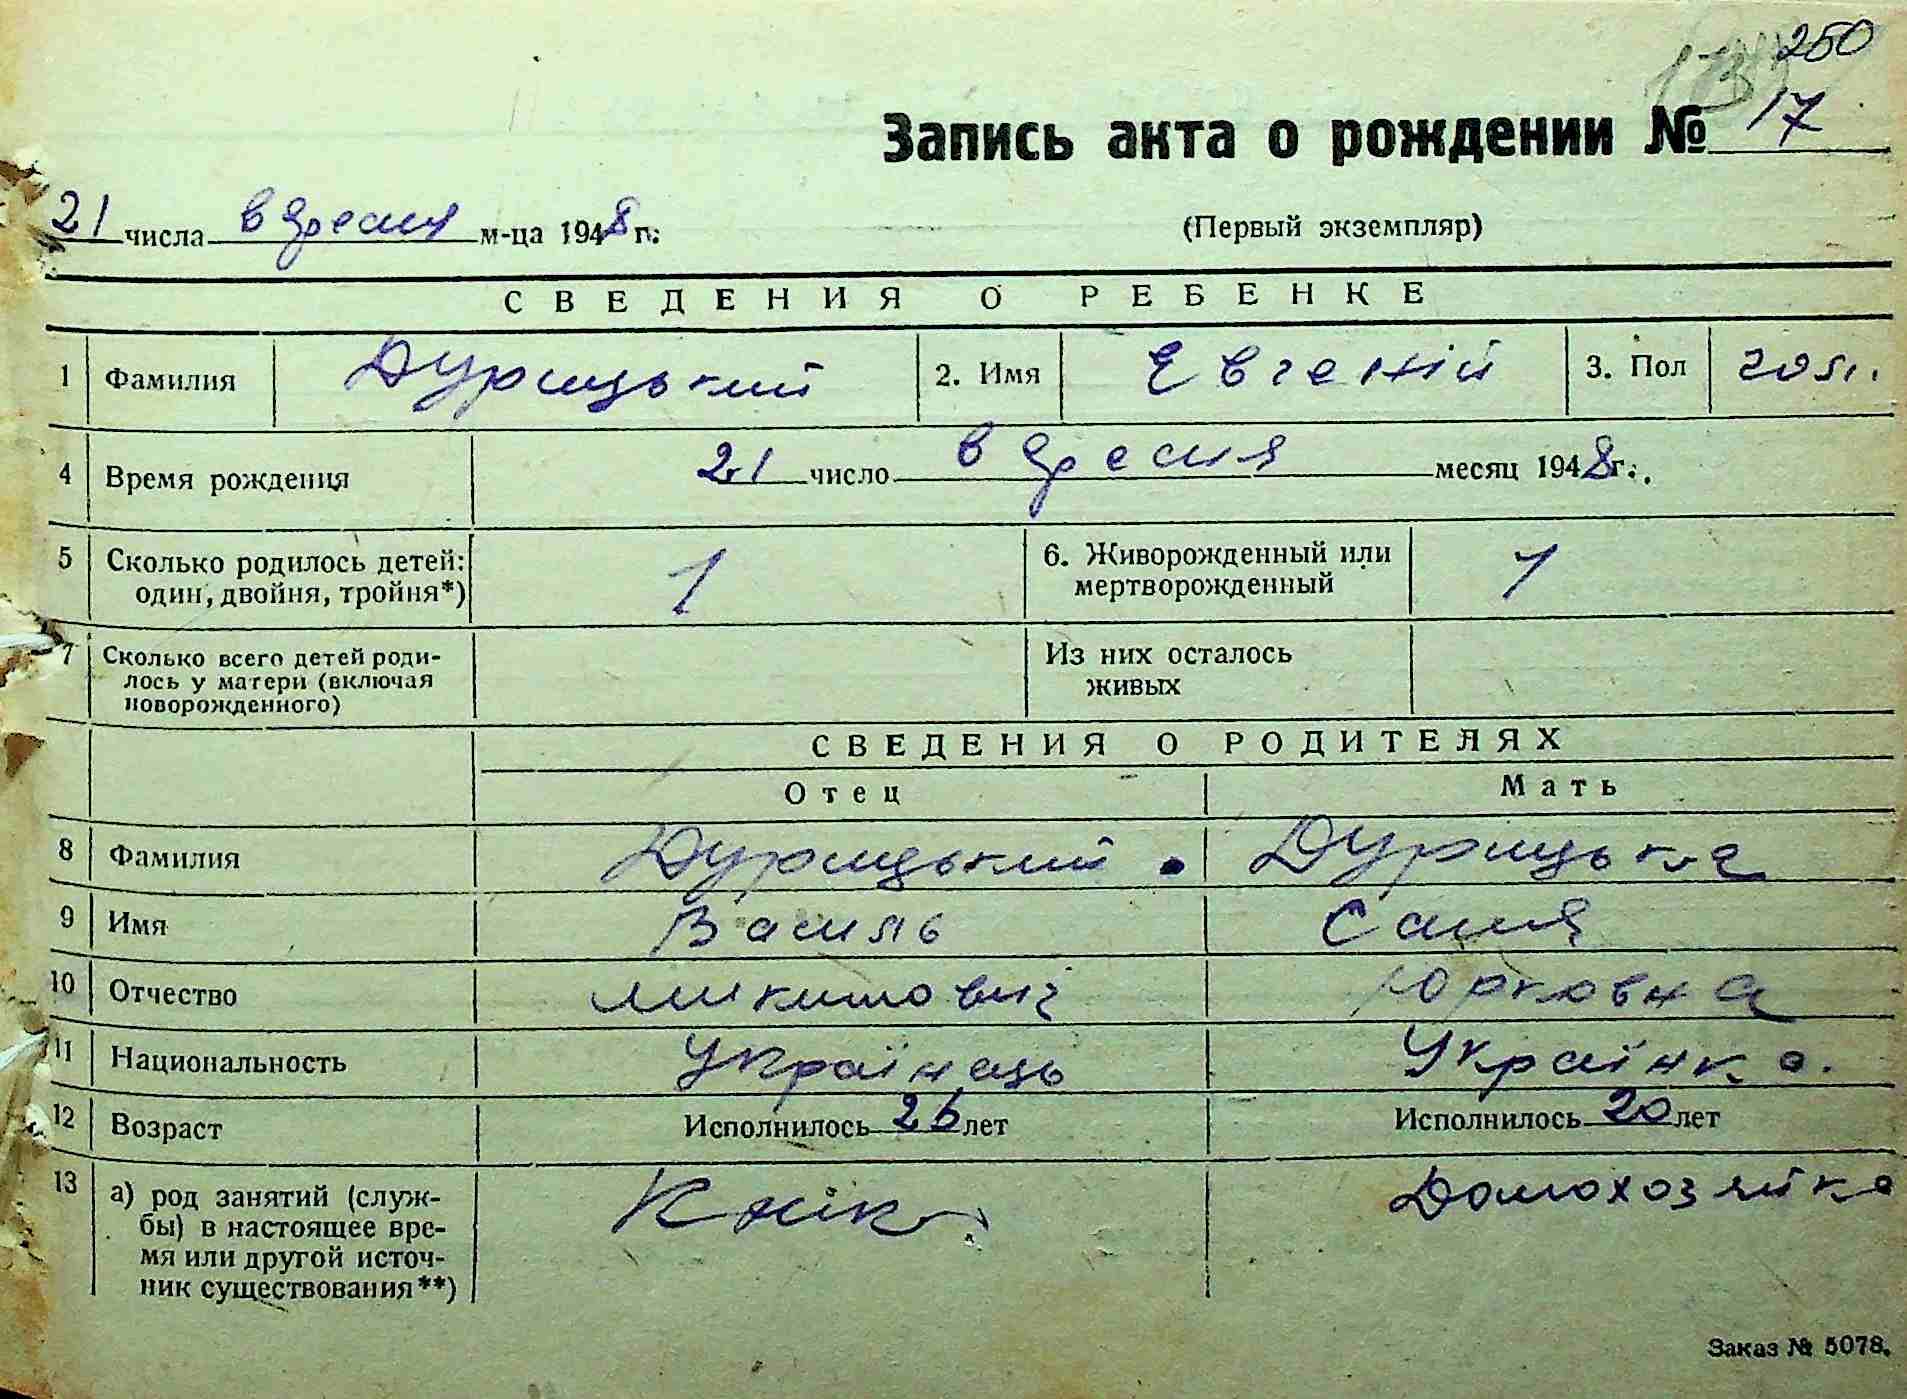 250
Запись акта о рождении № 17
21 числа вересня м-ца 1948 г.
(Первый экземпляр)
СВЕДЕНИЯ О РЕБЕНКЕ
1 Фамилия Дурицький 2. Имя Евгеній 3. Пол чол.
4 Время рождения 21 число вересня месяц 1948 г.
5 Сколько родилось детей: 1 6. Живорожденный или 1
один, двойня, тройня*) мертворожденный
7 Сколько всего детей роди- Из них осталось
лось у матери (включая живых
новорожденного)
СВЕДЕНИЯ О РОДИТЕЛЯХ
Отец Мать
8 Фамилия Дурицький Дурицька
9 Имя Василь
10 Отчество Юрковна
11 Национальность Українець Українка.
12 Возраст Исполнилось 26 лет Исполнилось 20 лет
13 а) род занятий (служ- Домохозяйка
бы) в настоящее вре-
мя или другой источ-
ник существования**)
Заказ № 5078.